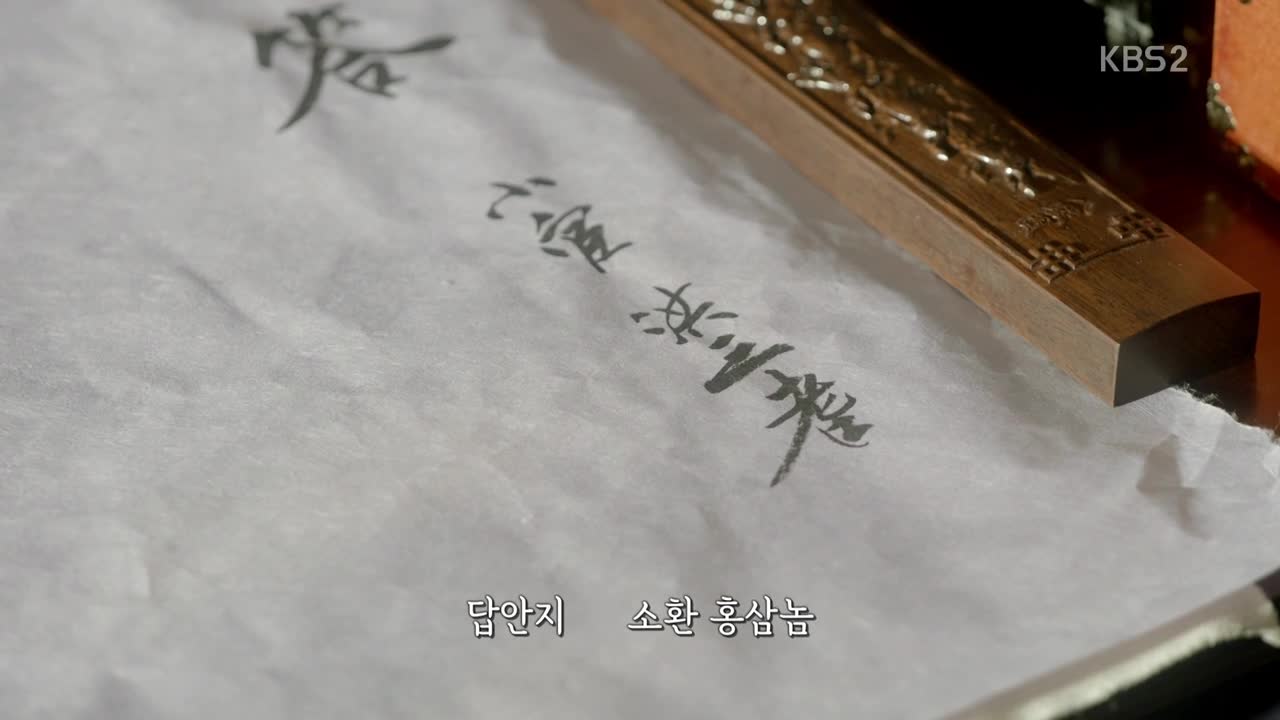 KBS2
答
小宦 洪三
답안지 소환 홍삼놈